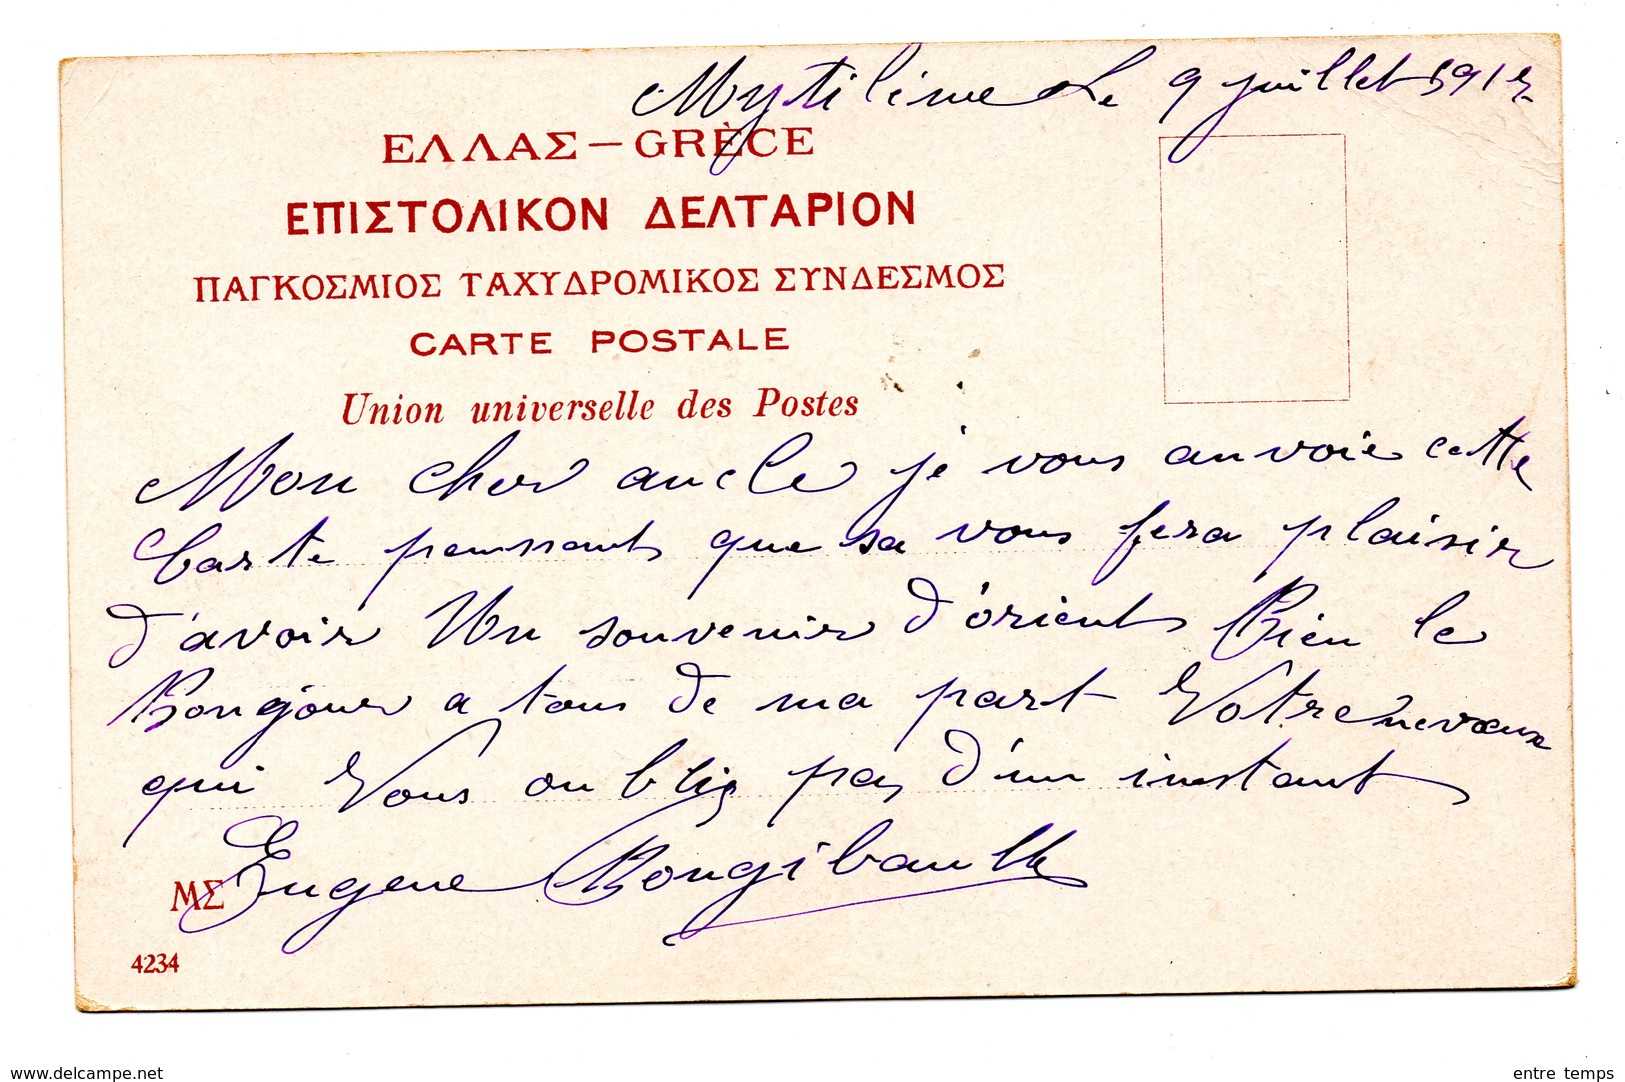 Mytilène Le 9 juillet 1915
ΕΛΛΑΣ – GRÈCE
ΕΠΙΣΤΟΛΙΚΟΝ ΔΕΛΤΑΡΙΟΝ
ΠΑΓΚΟΣΜΙΟΣ ΤΑΧΥΔΡΟΜΙΚΟΣ ΣΥΝΔΕΣΜΟΣ
CARTE POSTALE
Union universelle des Postes
Mon cher oncle je vous anvoie cette
Carte penssant que sa vous fera plaisir
d'avoir Un souvenir d'orient Bien le
Bonjour a tous de ma part Votre neveux
qui Vous oublis pas d'un instant
Eugene Bongibault
ΜΣ
4234
www.delcampe.net
entre temps